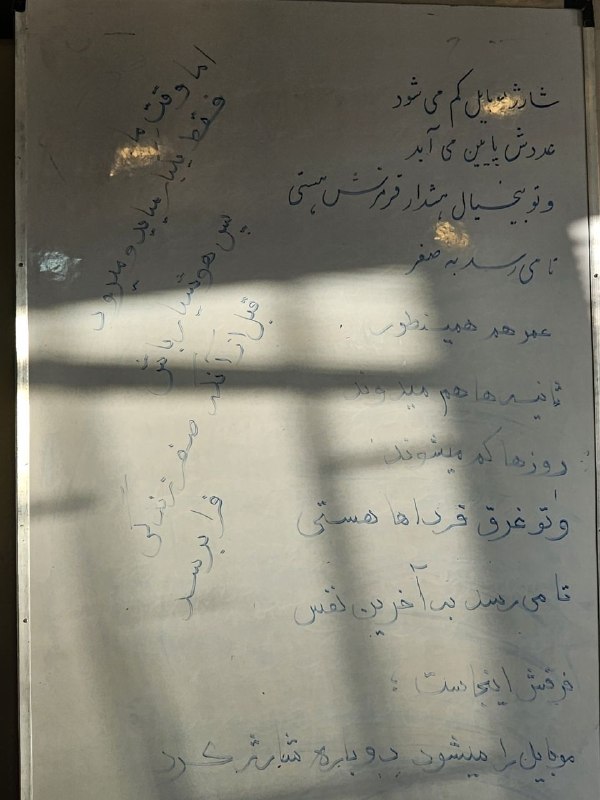 شارژ موبایل کم می شود
عددش پایین می آید
و تو بیخیال هشدار قرمزش هستی
تا می رسد به صفر
عمر هم همینطور
ثانیه ها هم میدوند
روزها کم میشوند
و تو غرق فردا ها هستی
تا می رسند به آخرین نفس
فرقش اینجاست :
موبایل را میشود دوباره شارژ کرد
اما وقت ما
فقط یکبار میاید و میرود
پس هوشیار باش
قبل از آنکه صفر زندگی
فرا برسد